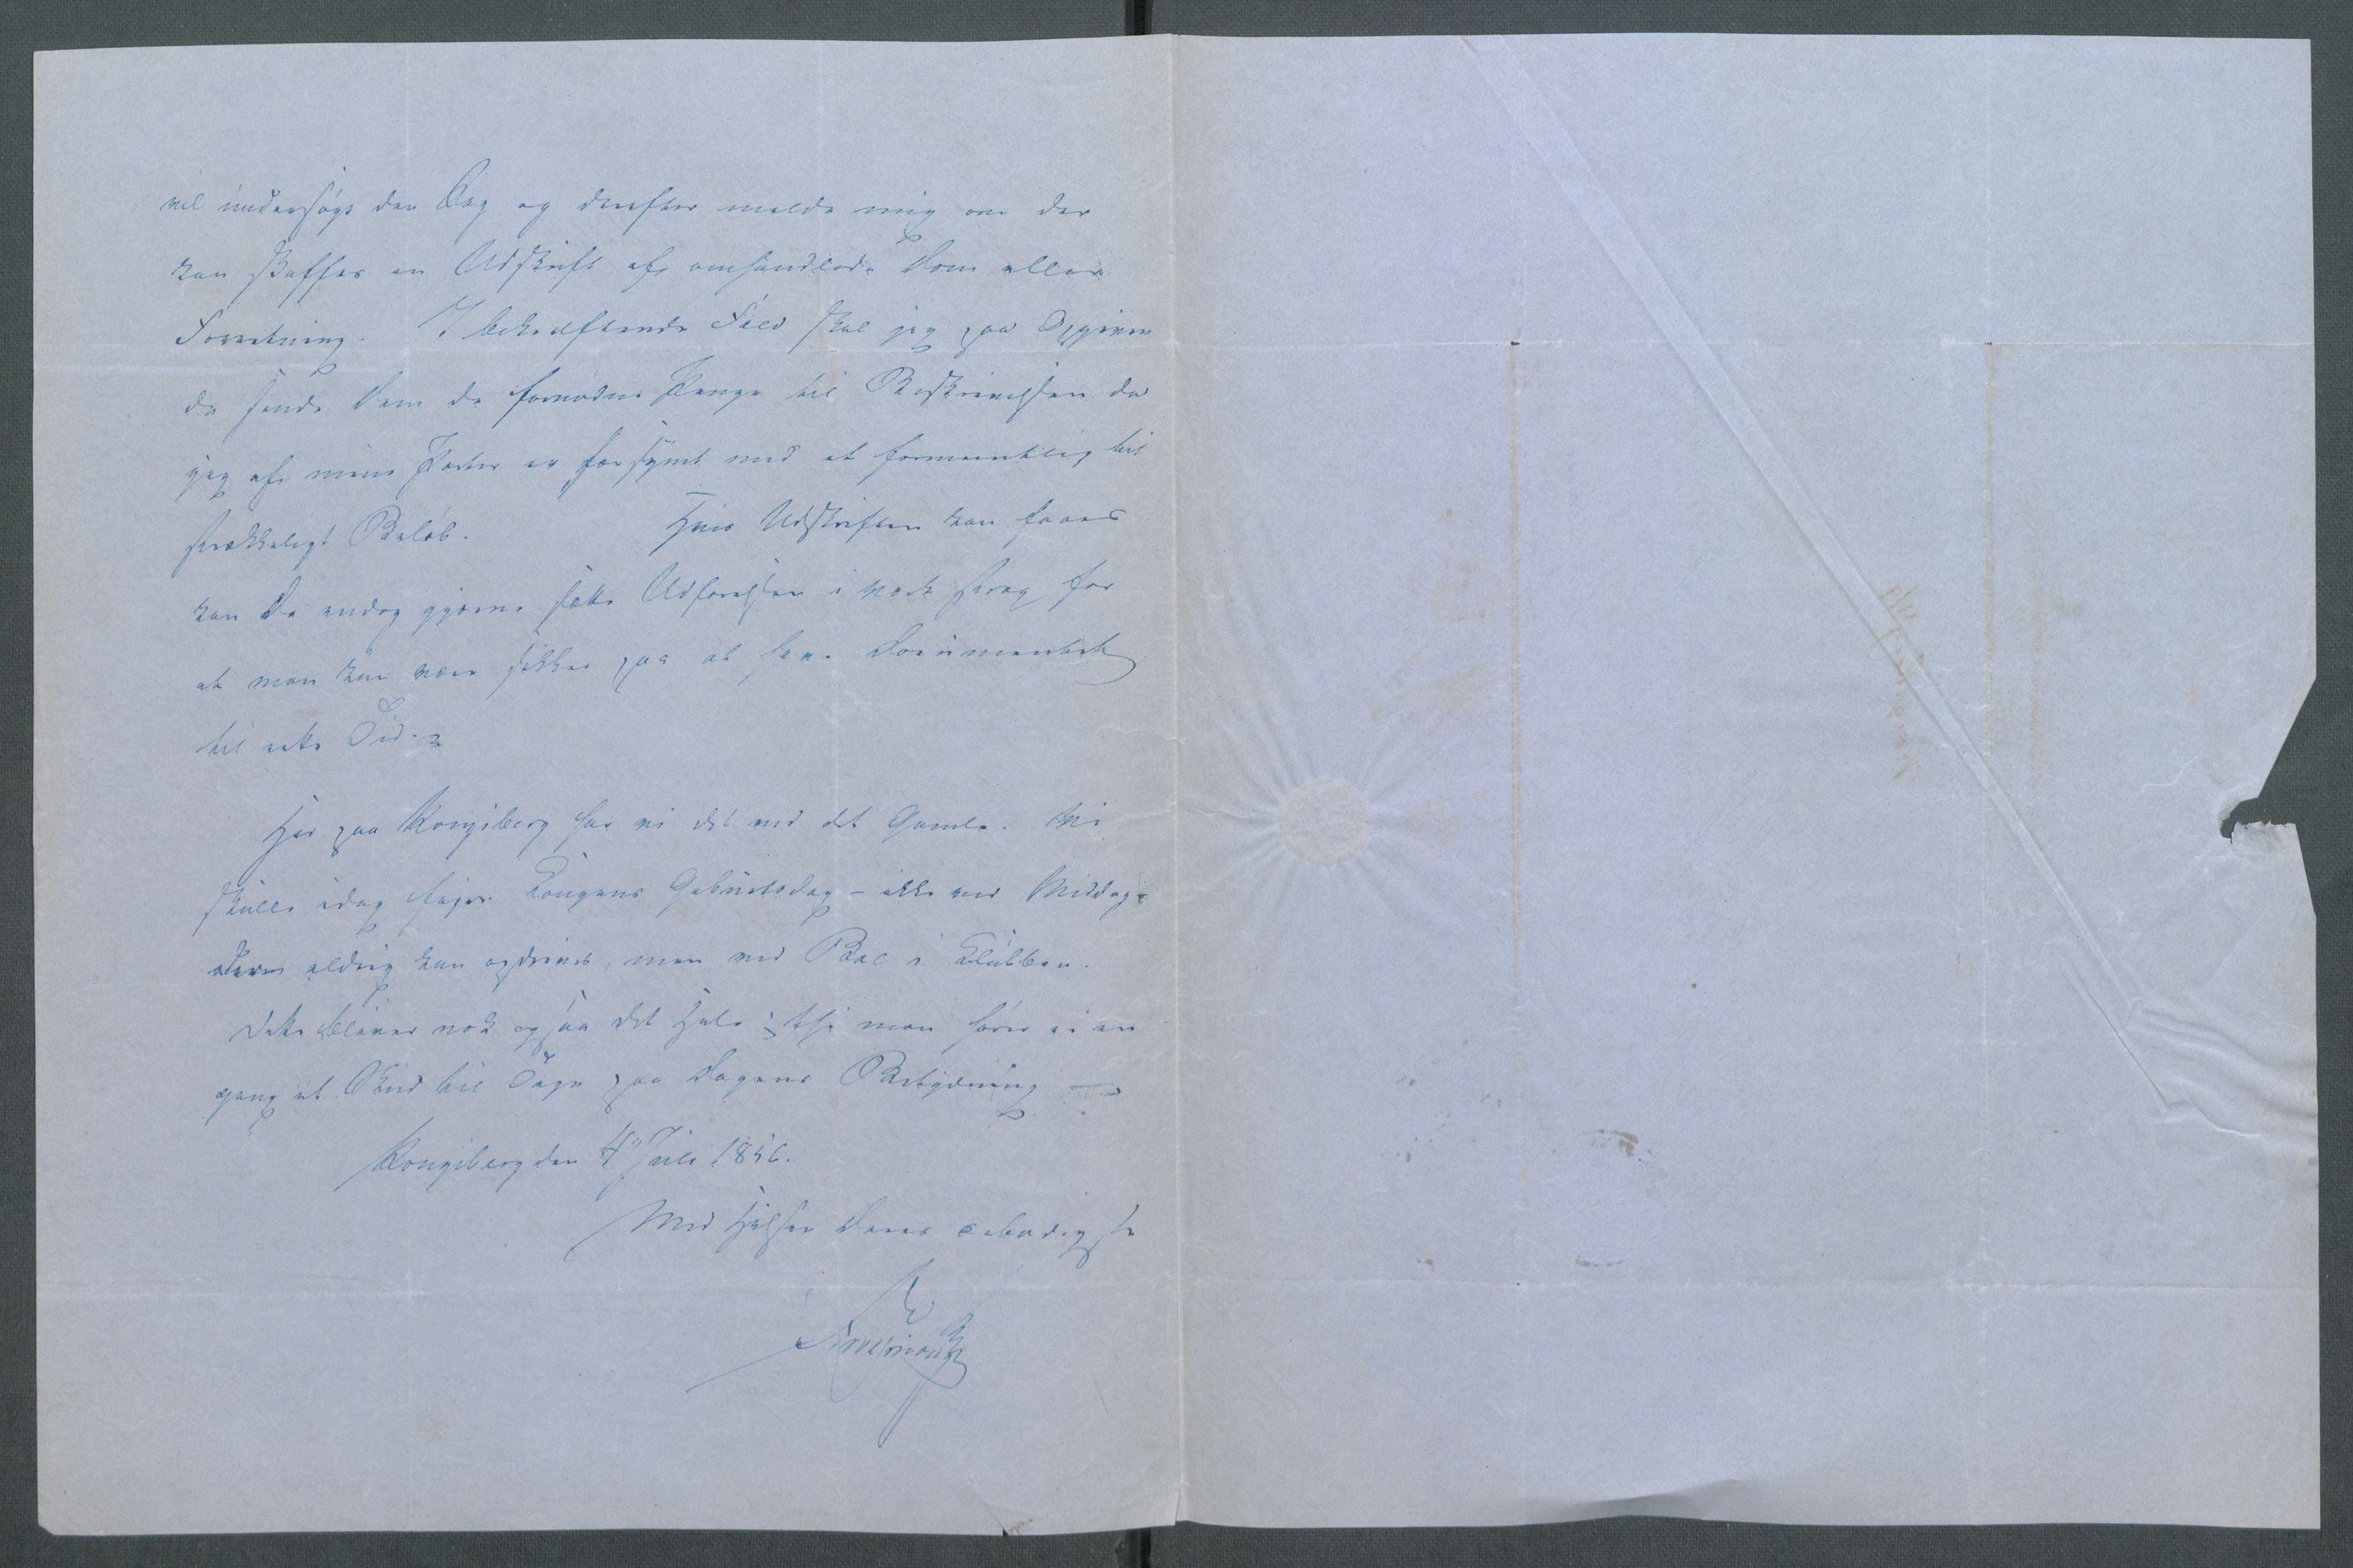 vil undersøge den Sag og derefter melde mig om der
kan skaffes en Udskrift af omhandlede Dom eller
Forretning. I bekræftende Fald skal jeg paa Opgiven
de sende Dem de fornødne Penge til Beskrivelsen da
jeg af mine Parter er forsynet med et formeentlig til
strækkeligt Beløb. Hvis Udskriften kan faaes
kan De endog gjerne sætte Udførelsen i værk strax for
at man kan være sikker paa at faae Documentet
til rette Tid.
Her paa Kongsberg har vi det ved det Gamle. Vi
skulle idag feire Kongens Geburtsdag – ikke ved Middag
som aldrig kan opdrives, men ved Bal i Clubben.
Dette bliver nok ogsaa det Hele; thi man hører ei en
gang et Skud til Tegn paa Dagens Betydning
Kongsberg den 4 Juli 1856.
Med Hilsen Deres ærbødigste